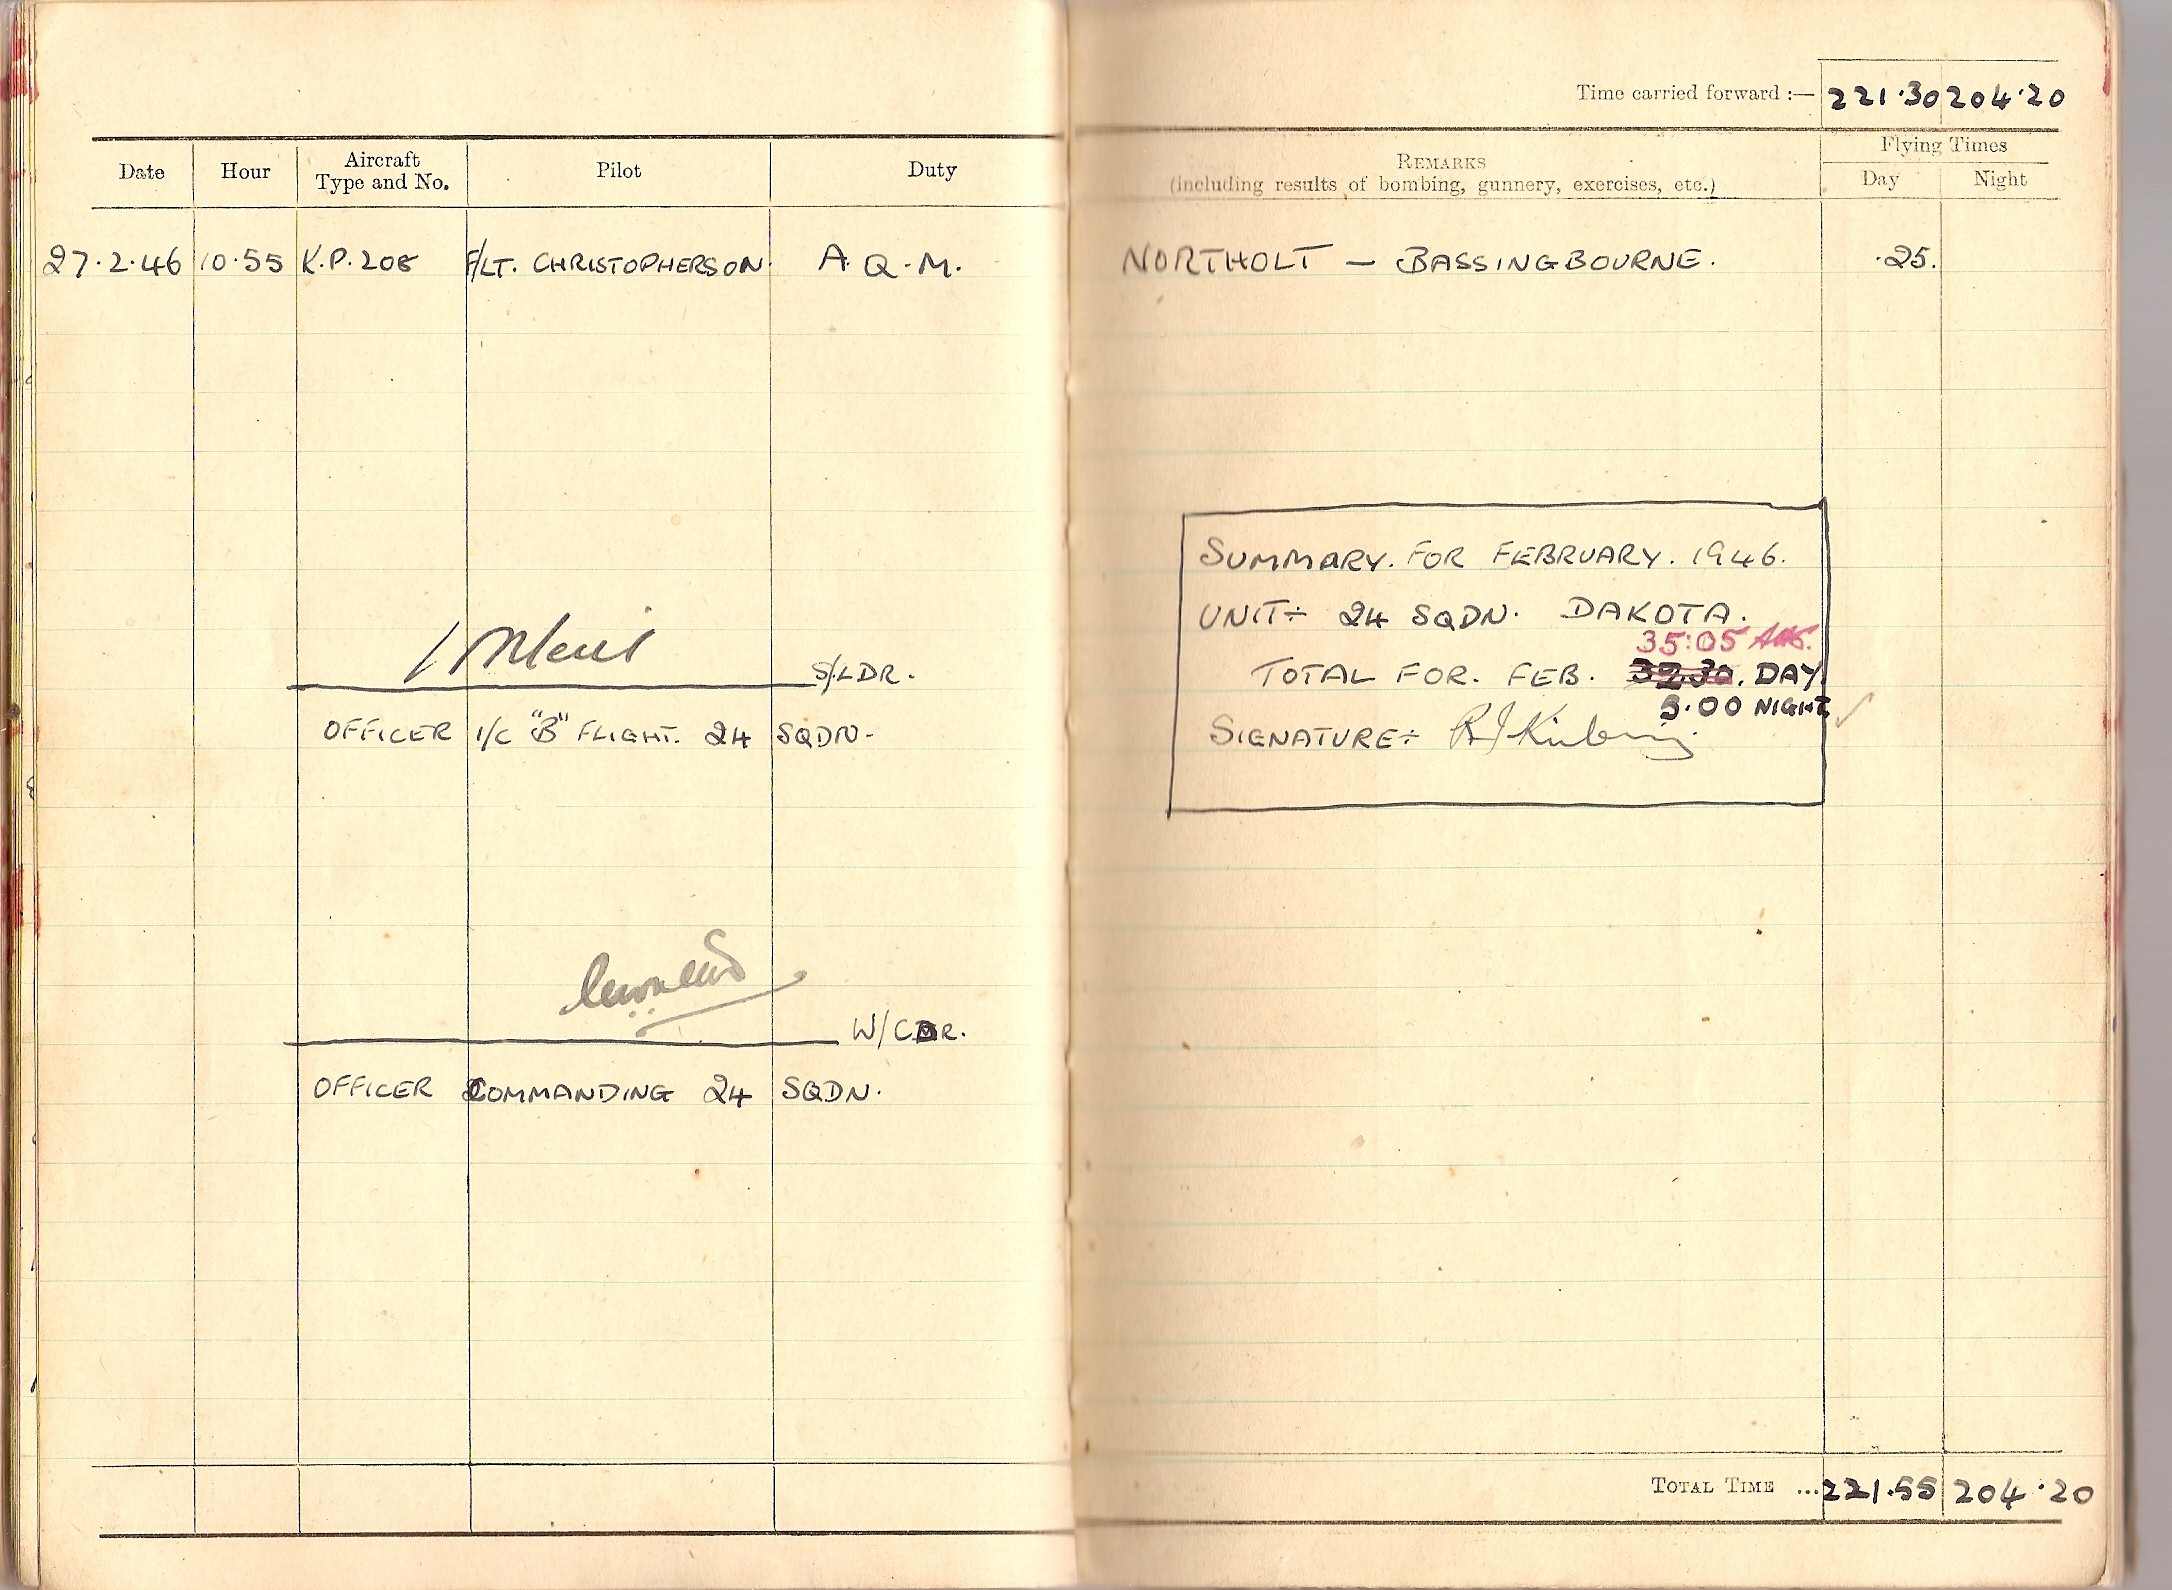 Time carried forward :— 221.30 204.20
Date Hour Aircraft Type and No. Pilot Duty
REMARKS
(Including results of bombing, gunnery, exercises, etc.)
Flying Times
Day Night
27.2.46 10.55 K.P. 208 F/LT. CHRISTOPHERSON. A. Q. M. NORTHOLT — BASSINGBOURNE. .25.
SUMMARY. FOR FEBRUARY. 1946.
UNIT÷ 24 SQDN. DAKOTA.
35:05
TOTAL FOR. FEB. 32.30. DAY.
5.00 NIGHT.
SIGNATURE÷
S/LDR.
OFFICER I/C "B" FLIGHT. 24 SQDN.
W/CDR.
OFFICER COMMANDING 24 SQDN.
TOTAL TIME ... 221.55 204.20